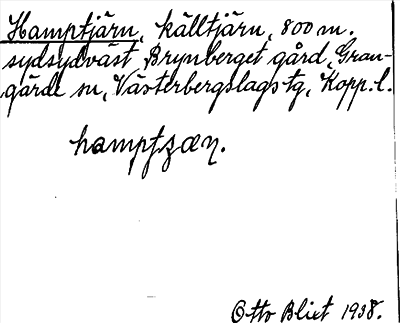 Hamptjärn, källtjärn, 800 m.
sydsydväst Brynberget gård, Gran-
gärde sn, Västerbergslags tg, Kopp. l.
hamptȥæɳ.
Otto Blixt 1938.